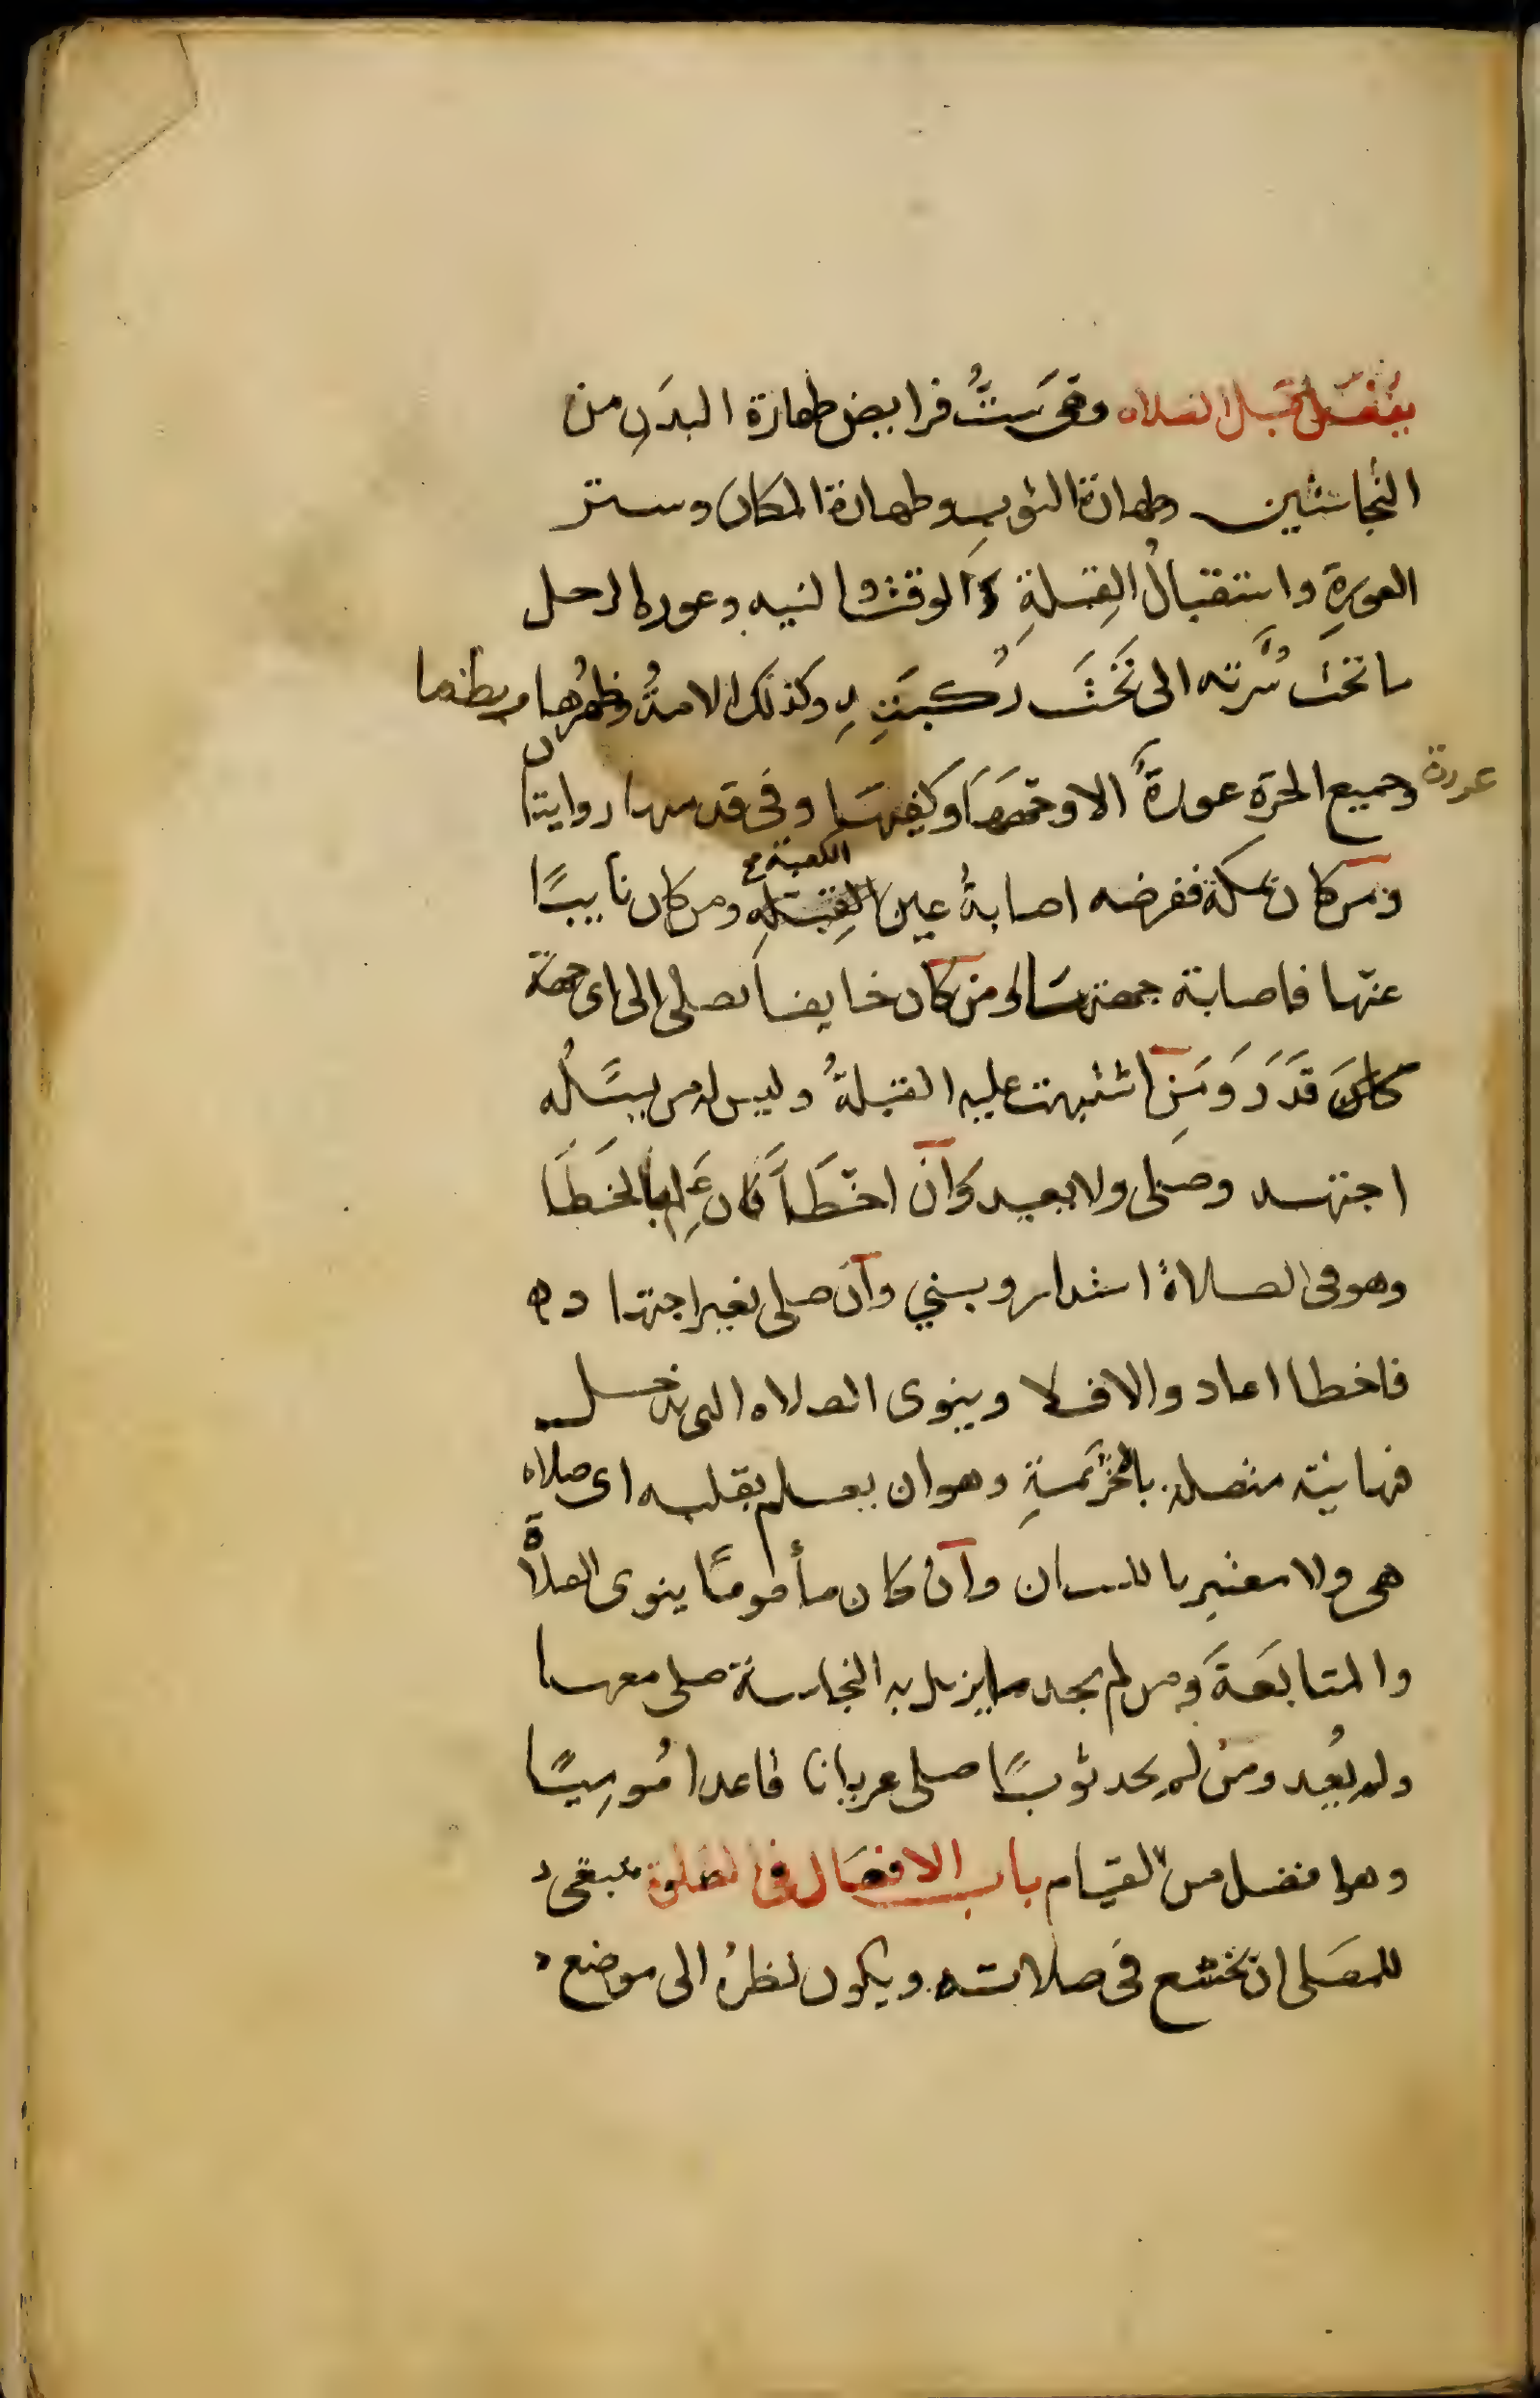 يفعل قبل الصلاه وهى ستُّ فرايض طهارة البدنِ من
النجاستين وطهارة الثوبِ وطهارة المكان وستر
العورةِ واستقبالُ القِبلةِ والوقت والنيه وعوره الرجل
ما تحت سُرته الى تحت ركبتِهِ وكذلك الامةُ وظهرُها وبطنها
عورة وجميع الحرة عورةٌ الا وجهَهَا وكفيهَا وفى قدميها روايتان
ومن كان بمكة ففرضه اصابةُ عين القِبلهِ الكعبة صح ومن كان نايياً
عنها فاصابة جهتها ومن كان خايفا يصلى الى اى جهة
كان قَدَرَ وَمَنِ اشتبهت عليه القبلةُ وليس له من يسَلُه
اجتهد وصلى ولا يعيد وان اخطَأَ فان عَلِم بالخَطَأ
وهو فى الصلاة استدار وبنى وان صلى بغير اجتهاد
فاخطا اعاد والا فلا وينوى الصلاه التى يدخل
فيها نية متصلة بالتحريمةِ وهو ان يعلم بقلبه اى صلاه
هى ولا معتبر باللسان وان كان مأموماً ينوى الصلاة
والمتابَعَةَ ومن لم يجد ما يزيل به النجاسة صلى معها
ولم يُعِد ومن لم يجد ثوباً صلى عريانا قاعدا مُومِياً
وهو افضل من القيام باب الافعال فى الصلوة ينبغى
للمصلى ان يخشع فى صلاته ويكون نظرُه الى موضع